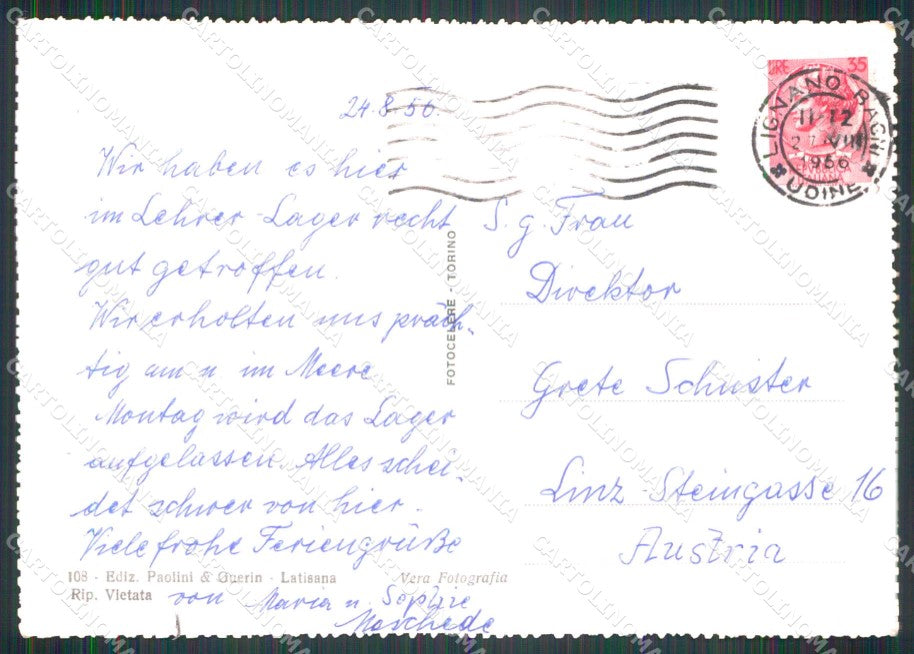 24.8.56.
Wir haben es hier
im Lehrer-Lager recht
gut getroffen.
Wir erholten uns präch-
tig am u im Meere
Montag wird das Lager
aufgelassen. Alles schei-
det schwer von hier.
Viele frohe Feriengrüße
von Maria u. Sophie
S. g. Frau
Direktor
Grete Schuster
Linz-Steingasse 16
Austria
LIRE 35
LIGNANO BAGNI
11-12
VIII
1956
UDINE
FOTOCELERE - TORINO
108 - Ediz. Paolini & Guerin - Latisana
Vera Fotografia
Rip. Vietata
CARTOLINOMANIA